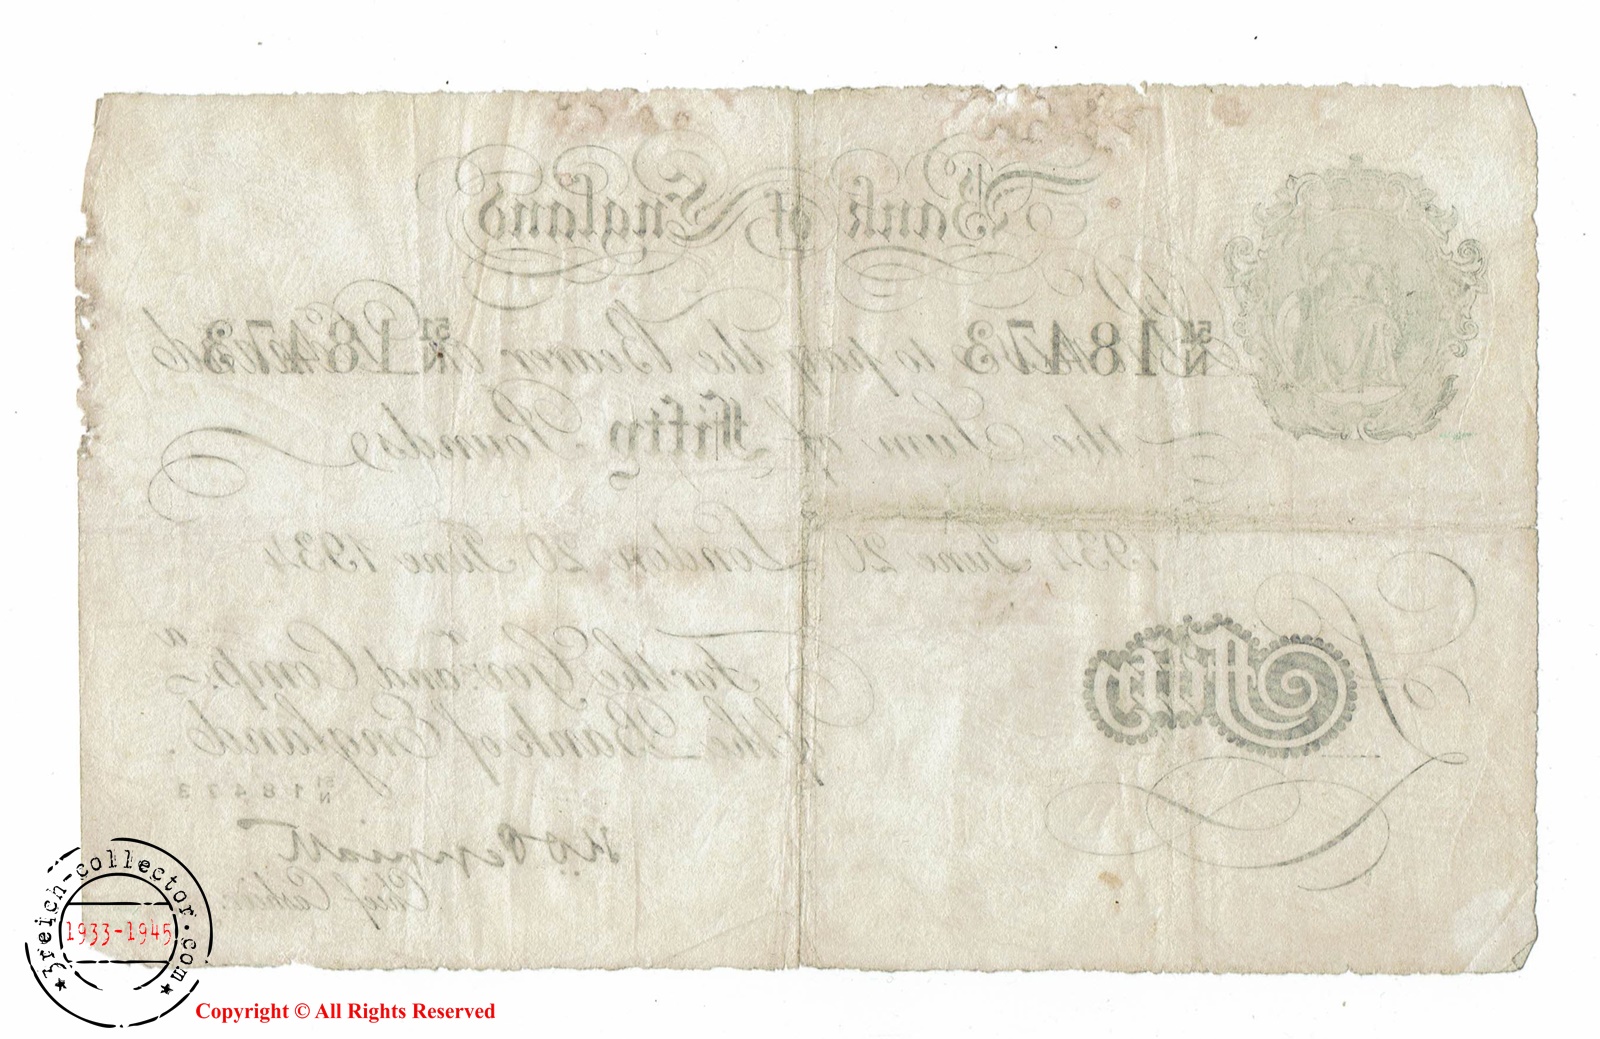 Bank of England
51/N 18473 to pay the Bearer on 51/N 18473 Demand
the Sum of Fifty Pounds
1934 June 20 London 20 June 1934
For the Govr. and Compa.
of the Bank of England.
51/N 18473
Chief Cashier.
£ Fifty
3reich-collector.com
1933-1945
Copyright © All Rights Reserved